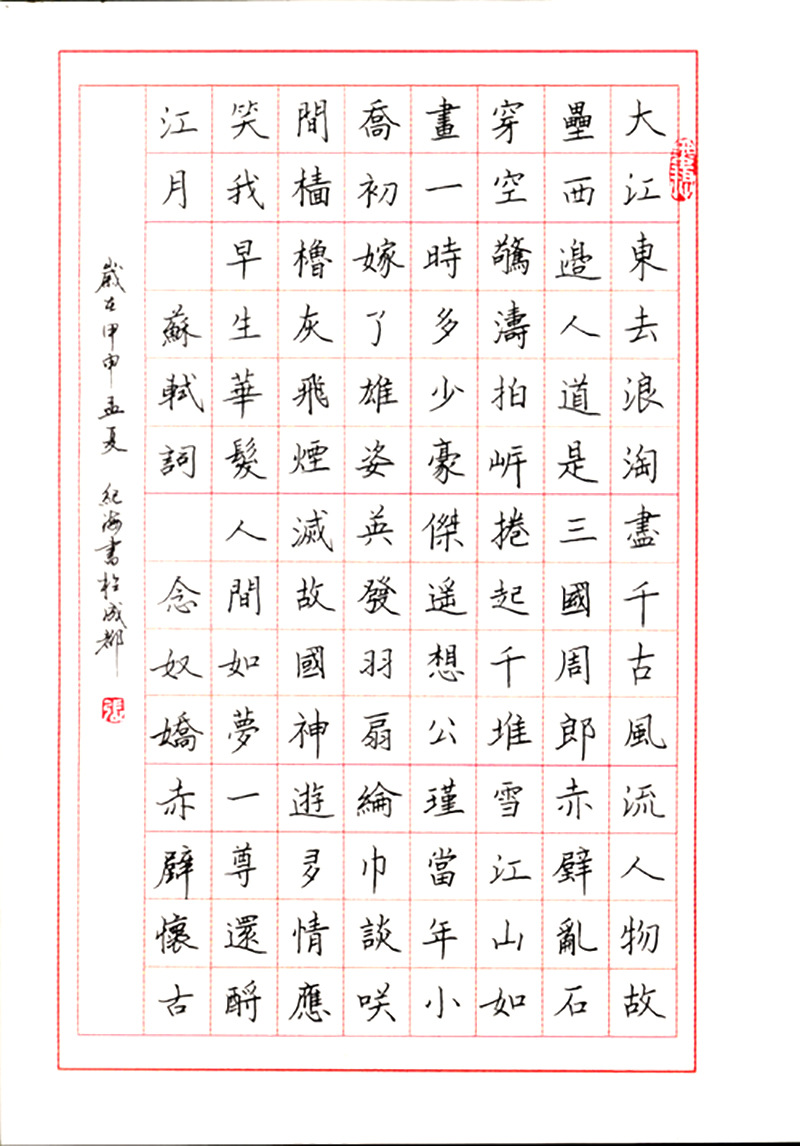 大江東去浪淘盡千古風流人物故
壘西邊人道是三國周郎赤壁亂石
穿空驚濤拍岍捲起千堆雪江山如
畫一時多少豪傑遥想公瑾當年小
喬初嫁了雄姿英發羽扇綸巾談咲
間檣櫓灰飛煙滅故國神遊多情應
笑我早生華髮人間如夢一尊還酹
江月 蘇軾詞 念奴嬌赤壁懷古
歲在甲申孟夏 紀海書於成都
張